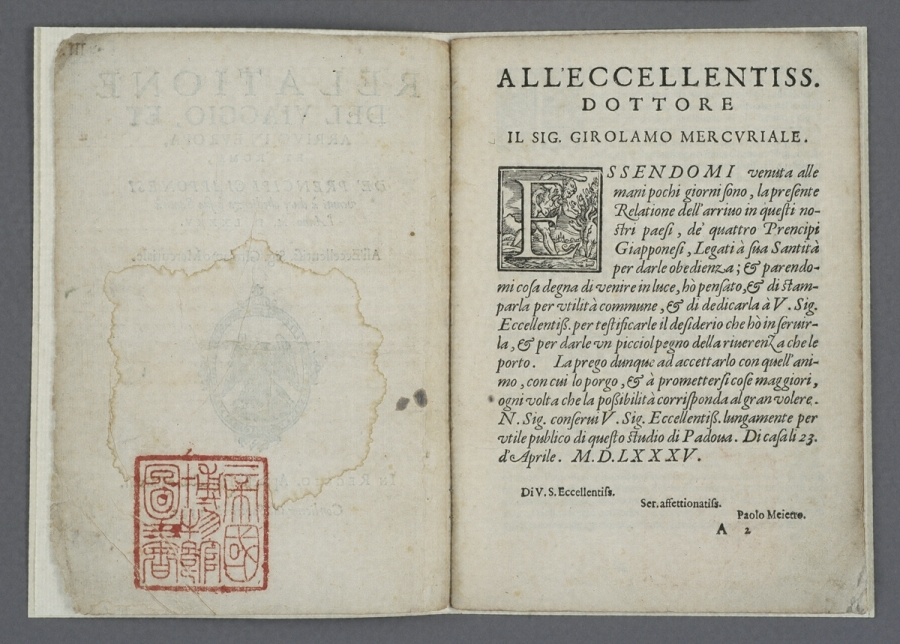 帝國
博物館
圖書
ALL'ECCELLENTISS.
DOTTORE
IL SIG. GIROLAMO MERCVRIALE.
ESSENDOMI venuta alle
mani pochi giorni sono, la presente
Relatione dell'arriuo in questi no-
stri paesi, de' quattro Prencipi
Giapponesi, Legati à sua Santità
per darle obedienza; & parendo-
mi cosa degna di venire in luce, hò pensato, & di stam-
parla per vtilità commune, & di dedicarla à V. Sig.
Eccellentiß. per testificarle il desiderio che hò in seruir-
la, & per darle vn picciol pegno della riuerenza che le
porto. La prego dunque ad accettarlo con quell'ani-
mo, con cui lo porgo, & à promettersi cose maggiori,
ogni volta che la poßibilità corrisponda al gran volere.
N. Sig. conserui V. Sig. Eccellentiß. lungamente per
vtile publico di questo studio di Padoua. Di casa li 23.
d'Aprile. M.D.LXXXV.
Di V. S. Eccellentiss.
Ser. affettionatiss.
Paolo Meietto.
A 2